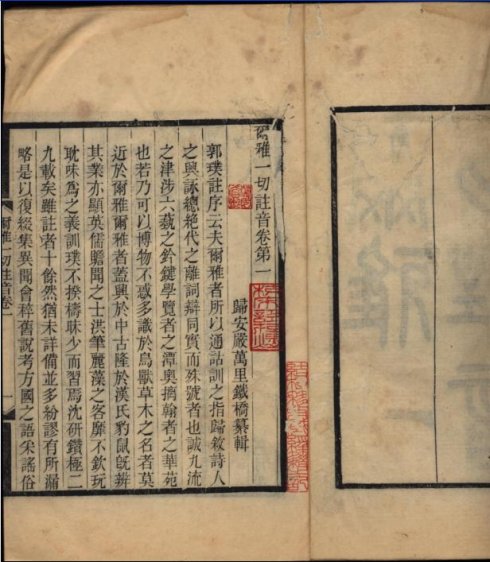 爾雅一切註音卷第一
歸安嚴萬里鐵橋纂輯
郭璞註序云夫爾雅者所以通詁訓之指歸敘詩人
之興詠總絶代之離詞辯同實而殊號者也誠九流
之津涉六蓺之鈐鍵學覽者之潭奧摛翰者之華苑
也若乃可以博物不惑多識於鳥獸草木之名者莫
近於爾雅爾雅者蓋興於中古隆於漢氏豹鼠旣辨
其業亦顯英儒贍聞之士洪筆麗藻之客靡不欽玩
耽味爲之義訓璞不揆檮昧少而習焉沈研鑽極二
九載矣雖註者十餘然猶未詳備並多紛謬有所漏
略是以復綴集異聞會稡舊說考方國之語采謠俗
爾雅一切註音卷一
一